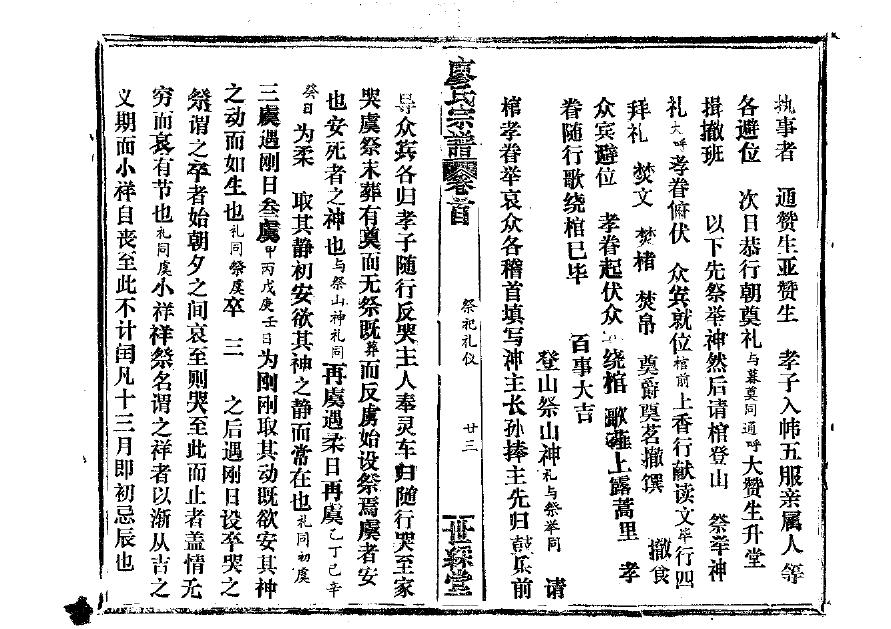 执事者　通赞生亚赞生　孝子入帏五服亲属人等
各避位　次日恭行朝奠礼与暮奠同通呼大赞生升堂
揖撤班　以下先祭举神然后请棺登山　祭举神
礼大呼孝眷俯伏　众宾就位棺前上香行献读文毕行四
拜礼　焚文　焚楮　焚帛　奠爵奠茗撤馔　撤食
众宾避位　孝眷起伏众　绕棺　歌薤上露蒿里　孝
眷随行歌绕棺已毕　百事大吉
登山祭山神礼与祭举同　请
棺孝眷举哀众各稽首填写神主长孙捧主先归鼓乐前
廖氏宗谱　卷首　祭祀礼仪　廿三　世綵堂
导众宾各归孝子随行反哭主人奉灵车归随行哭至家
哭虞祭未葬有奠而无祭既葬而反虏始设祭焉虞者安
也安死者之神也与祭山神礼同再虞遇柔日再虞乙丁己辛
癸日为柔　取其静初安欲其神之静而常在也礼同初虞
三虞遇刚日叁虞甲丙戊庚壬日为刚刚取其动既欲安其神
之动而如生也礼同祭虞卒　三　之后遇刚日设卒哭之
祭谓之卒者始朝夕之间哀至则哭至此而止者盖情无
穷而哀有节也礼同虞小祥祥祭名谓之祥者以渐从吉之
义期而小祥自丧至此不计闰凡十三月即初忌辰也